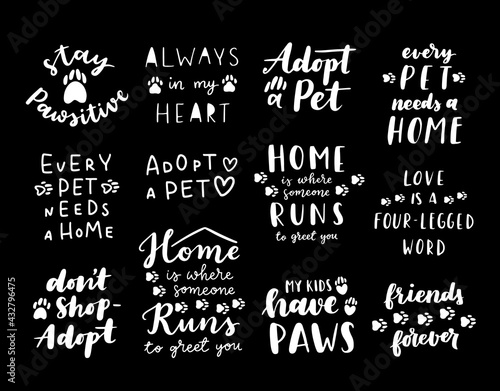 stay
Pawsitive
ALWAYS
in my
HEART
Adopt
a Pet
every
PET
needs a
HOME
EVERY
PET
NEEDS
A HOME
ADOPT
A PET
HOME
is where
someone
RUNS
to greet you
LOVE
IS A
FOUR-LEGGED
WORD
don't
Shop-
Adopt
Home
is where
someone
Runs
to greet you
MY KIDS
have
PAWS
friends
forever
Adobe Stock | #432796475